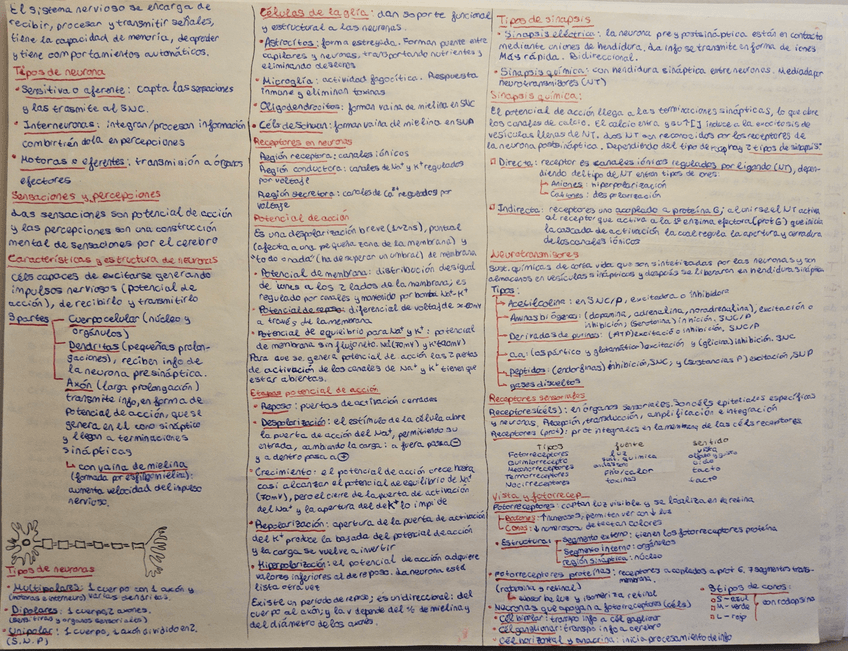 El sistema nervioso se encarga de
recibir, procesar y transmitir señales,
tiene la capacidad de memoria, de aprender
y tiene comportamientos automáticos.
Tipos de neurona
• Sensitiva o aferente: capta las sensaciones
y las trasmite al SNC.
• Interneuronas: integran/procesan información
combirtiéndola en percepciones
• Motoras o eferentes: transmisión a órganos
efectores
Sensaciones y percepciones
Las sensaciones son potencial de acción
y las percepciones son una construcción
mental de sensaciones por el cerebro
Características y estructura de neuronas
Céls capaces de excitarse generando
impulsos nerviosos (potencial de
acción), de recibirlo y transmitirlo
3 partes Cuerpo celular (núcleo y
orgánulos)
Dendritas (pequeñas prolon-
gaciones), reciben info de
la neurona presináptica.
Axón (larga prolongación)
transmite info, en forma de
potencial de acción, que se
genera en el cono sináptico
y llegan a terminaciones
sinápticas
↳ con vaina de mielina
(formada por esfingomielina):
aumenta velocidad del impulso
nervioso.
Tipos de neuronas
• Multipolares: 1 cuerpo con 1 axón y
(motoras e interneuro) varias dendritas.
• Bipolares: 1 cuerpo y 2 axones.
(sensitivas y órganos sensoriales)
• Unipolar: 1 cuerpo, 1 axón dividido en 2.
(S.N.P)
Células de la glía: dan soporte funcional
y estructural a las neuronas.
• Astrocitos: forma estrellada. Forman puente entre
capilares y neuronas, transportando nutrientes y
eliminando desechos
• Microglía: actividad fagocítica. Respuesta
inmune y eliminan toxinas.
• Oligodendrocitos: forman vaina de mielina en SNC
• Céls de Schwan: forman vaina de mielina en SNP
Receptores en neuronas
Región receptora: canales iónicos
Región conductora: canales de Na⁺ y K⁺ regulados
por voltaje
Región secretora: canales de Ca²⁺ regulados por
voltaje
Potencial de acción
Es una despolarización breve (1-2ms), puntual
(afecta a una pequeña zona de la membrana) y
"todo o nada" (ha de superar un umbral) de membrana
• Potencial de membrana: distribución desigual
de iones a los 2 lados de la membrana, es
regulado por canales y mantenido por bomba Na⁺-K⁺
• Potencial de reposo: diferencial de voltaje de
a través de la membrana.
• Potencial de equilibrio para Na⁺ y K⁺: potencial
de membrana sin flujo neto.
Para que se genere potencial de acción las
de activación de los canales de Na⁺ y K⁺ tienen que
estar abiertas.
Etapas potencial de acción
• Reposo: puertas de activación cerradas
• Despolarización: el estímulo de la célula abre
la puerta de acción del Na⁺, permitiendo su
entrada, cambiando la carga: a fuera pasa ⊖
y a dentro pasa a ⊕
• Crecimiento: el potencial de acción crece hasta
casi alcanzar el potencial de equilibrio de Na⁺
(70mV), pero el cierre de la puerta de activación
del Na⁺ y la apertura del de K⁺ lo impide
• Repolarización: apertura de la puerta de activación
del K⁺ produce la bajada del potencial de acción
y la carga se vuelve a invertir
• Hiperpolarización: el potencial de acción adquiere
valores inferiores al de reposo. La neurona está
lista otra vez
Existe un período de reposo; es unidireccional: del
cuerpo al axón; y la v depende del % de mielina y
del diámetro de los axones.
Tipos de sinapsis
• Sinapsis eléctrica: la neurona pre y postsináptica están en contacto
mediante uniones de hendidura. La info se transmite en forma de iones
Más rápida. Bidireccional.
• Sinapsis química: con hendidura sináptica entre neuronas. Mediada por
neurotransmisores (NT)
Sinapsis química:
El potencial de acción llega a las terminaciones sinápticas, lo que abre
los canales de calcio. El calcio entra y su ↑[] induce a la exocitosis de
vesículas llenas de NT. Los NT son reconocidos por los receptores de
la neurona postsináptica. Dependiendo del tipo de 2 tipos de sinapsis
Directa: receptor es canales iónicos regulados por ligando (NT), depen-
diendo del tipo de NT entran tipos de iones.
↳ Aniones: hiperpolarización
↳ Cationes: despolarización
Indirecta: receptores una acoplado a proteína G; al unirse el NT activa
al receptor que activa a la 1ª enzima efectora (prot G) que inicia
la cascada de activación la cual regula la apertura y cerradura
de los canales iónicos
Neurotransmisores
Sust. químicas de corta vida que son sintetizadas por las neuronas y son
almacenas en vesículas sinápticas y después se liberaran en hendidura sináptica
Tipos:
Acetilcolina: en SNC/P, excitadora o inhibidora
Aminas biógenas: (dopamina, adrenalina, noradrenalina), excitación o
inhibición; (serotonina) inhibición. SNC/P
Derivadas de purinas: (ATP) excitación o inhibición. SNC/P
a.a: (aspártico y glutamático) excitación y (glicina) inhibición. SNC
Péptidos: (endorfinas) inhibición, SNC; y (sustancias P) excitación, SNP
gases disueltos
Receptores sensoriales
Receptores (cels): en órganos sensoriales. Son céls epiteliales específicas
y neuronas. Recepción, transducción, amplificación e integración
Receptores (prot): prot integrales en la membrana de las céls receptoras
Tipos fuente sentido
Fotorreceptores luz vista
Quimiorrecepto sust. química olfato y gusto
Mecanorreceptores oído
Termorreceptores frío/calor tacto
Nocirreceptores toxinas tacto
Vista y fotorrecep...
Fotorreceptores: captan luz visible y se localiza en la retina
Bastones: ↑numerosos, permiten ver con ↓luz
Conos: ↓numerosos, detectan colores
• Estructuras Segmento externo: tienen los fotorreceptores proteína
Segmento interno: orgánulos
región sináptica: núcleo
• Fotorreceptores proteínas: receptores acoplados a prot G, 7 segmentos trans-
membrana.
(rodopsina y retinal)
↳ absorbe luz e isomeriza retinal
• Neuronas que apoyan a fotorreceptores (céls)
• Cél bipolar: transpo info a cél ganglionar
• Cél ganglionar: transpo info a cerebro
• Cél horizontal y amacrina: inicia procesamiento de info
3 tipos de conos:
S - azul
M - verde
L - rojo
con rodopsina